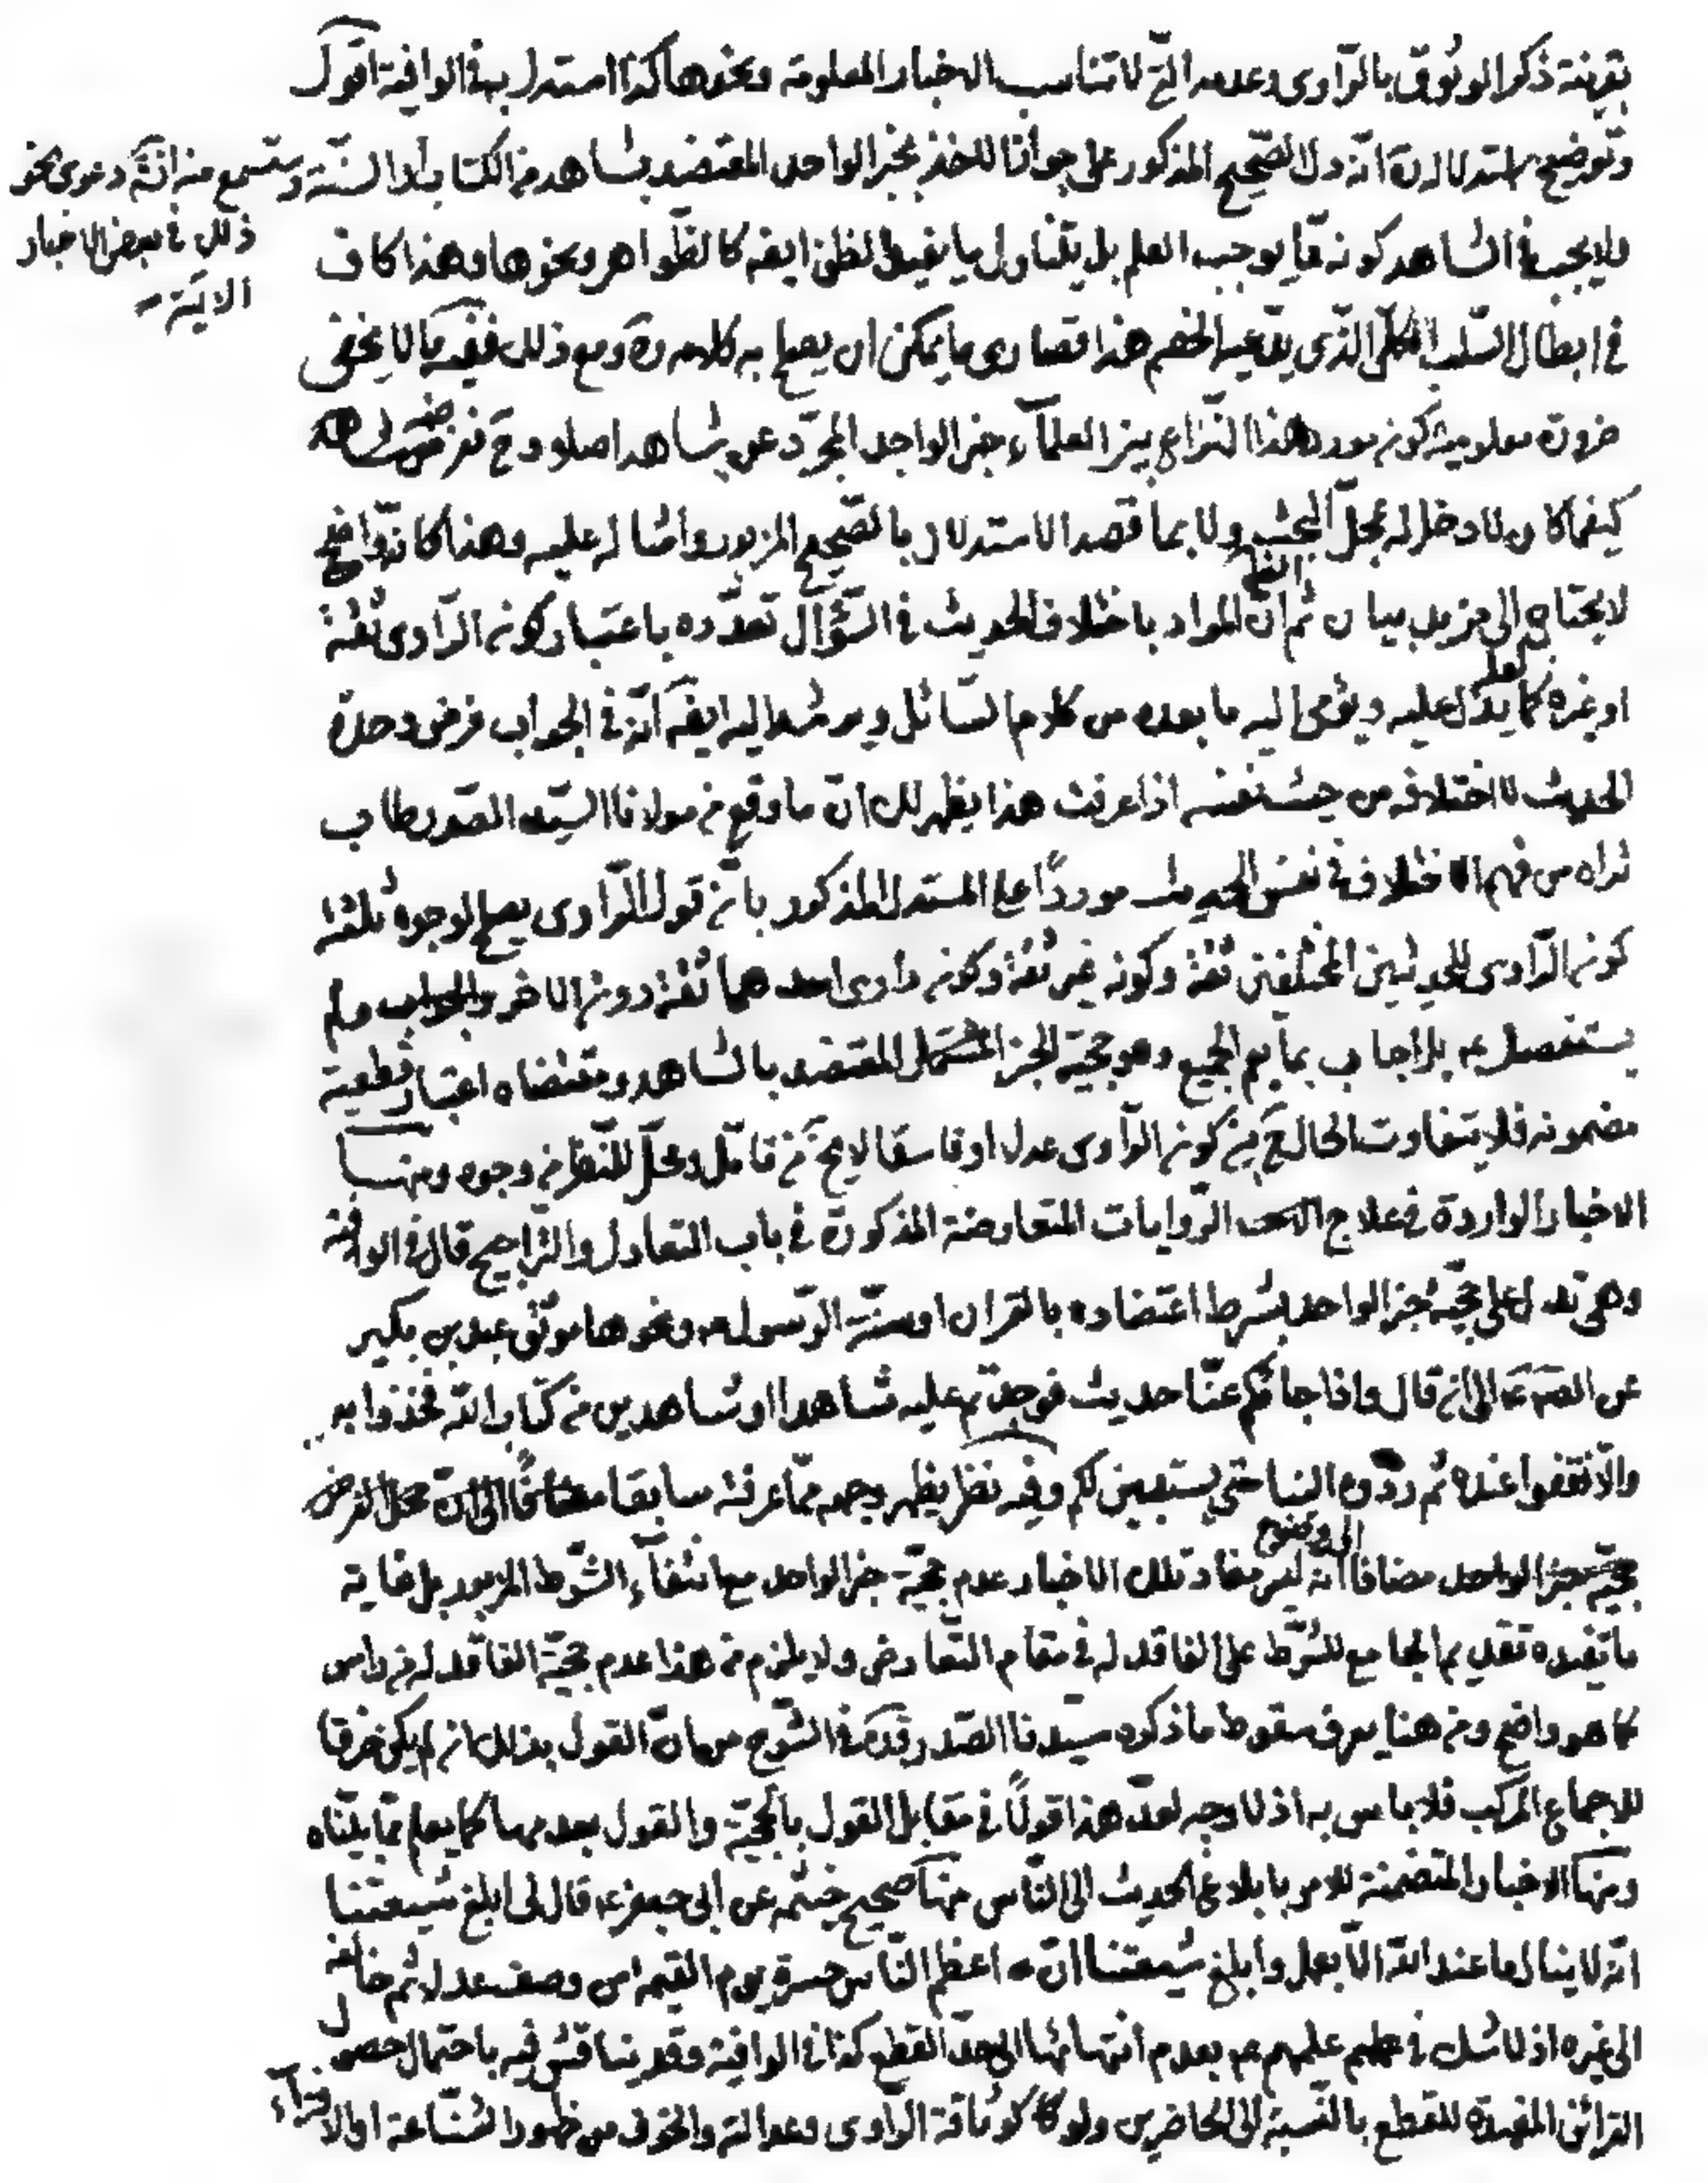 بقرينة ذكر الوثوق بالرّاوى وعدمه الّتي لا تناسب الاخبار المعلومة ونحوها كذا استدل به في الوافية اقول
وتوضيح استدلاله ره انّه دلّ الصّحيح المذكور على جواز الاخذ بخبر الواحد المعتضد بشاهد من الكتاب أو السنّة
وستسمع منه انشه دعوى نحو
ذلك في بعض الاخبار
الاتية
ولا يجب في الشاهد كونه ممّا يوجب العلم بل يتناول ما يفيد الظن ايضه كالظّواهر ونحوها وهذا كاف
في ابطال السّلب الكلّى الذّى يدّعيه الخصم هذا قصارى ما يمكن ان يصحح به كلامه ره ومع ذلك ففيه ما لا يخفى
ضرورة معلومية كونه مورد هذا النّزاع بين العلمآء خبر الواحد المجرّد عن شاهد اصلا وح فغرض
كيفما كان لا دخل له بمحلّ البحث ولا بما قصد الاستدلال بالصّحيح المزبور وامثاله عليه وهذا كانّه واضح
لا يحتاج الى مزيد بيان ثم انّ الظ المراد باختلاف الحديث في السّؤال تعدّده باعتبار كونه الرّاوى ثقة
او غيره كما يدلّ عليه ويؤمى اليه ما بعده من كلام السّائل ويرشد اليه ايضه انّه في الجواب فرض وحدة
الحديث لا اختلافه من حيث نفسه اذا عرفت هذا يظهر لك انّ ما وقع من مولانا السيّد الصّدر طاب
ثراه من فهم الاختلاف في نفس الحديث موردًا على المستدل المذكور بانّه قول الرّاوى يعمّ الوجوه ثلثة
كونه الرّاوى للحديثين المختلفين ثقة وكونه غير ثقة وكونه راوى احدهما ثقة دون الاخر والجواب ولم
يستفصل بل اجاب بما يعم الجميع وهو حجّية الخبر المعتضد بالشاهد ومقتضاه اعتبار قطعية
مضمونه فلا يتفاوت الحال ح بين كونه الرّاوى عدلا او فاسقا لا يخ من تامّل ومحلّ للنّظر من وجوه ومنها
الاخبار الواردة في علاج الرّوايات المتعارضة المذكورة في باب التعادل والتّراجيح قال في الوافية
وهى تدل على حجّية خبر الواحد بشرط اعتضاده بالقران او سنّة الرّسول ص ونحوها موثّق عبد بن بكير
عن الصه ع الى ان قال واذا جائكم عنّا حديث فوجدتم عليه شاهدا او شاهدين من كتاب اللّه فخذوا به
والّا فقفوا عنده ثم ردّوه الينا حتّى يستبين لكم وفيه نظر يظهر وجهه ممّا عرفته سابقا مضافًا الى انّ محل الفرض
حجّية خبر الواحد مضافا الى وضوح انّه ليس مفاد تلك الاخبار عدم حجّية خبر الواحد مع انتفآء الشّرط المزبور بل غاية
ما تفيده تقديم الجامع للشّرط على الفاقد له في مقام التّعارض ولا يلزم من هذا عدم حجّية الفاقد له من راس
كما هو واضح ومن هنا يعرف سقوط ما ذكره سيّدنا الصّدر قده في الشّرح من انّ القول بذلك ان لم يكن خرقا
للاجماع المركّب فلا باس به اذ لا وجه لعدّ هذا قولًا في مقابل القول بالحجّية والقول بعدمها كما يعلم ممّا بيّنّاه
ومنها الاخبار المتضمّنة للامر بابلاغ الحديث الى النّاس منها صحيح خيثمه عن ابى جعفر ع قال لى ابلغ شيعتنا
انّه لا ينال ما عند اللّه الّا بعمل وأبلغ شيعتنا انّ اعظم النّاس حسرة يوم القيمه من وصف عدلا ثم خالفه
الى غيره اذ لا شك في علمهم ع بعدم انتهائها الى حدّ القطع كذا في الوافية وقد يناقش فيه باحتمال حصول
القرائن المفيدة للقطع بالنّسبة الى الحاضرين ولو كا كوثاقة الرّاوى وعدالته والخوف من ظهور الشّناعة او الافترآء